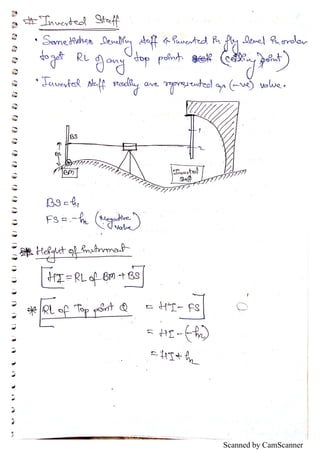 # Inverted Staff
• Sometimes levelling staff is inverted in fly level in order
to get RL of any top point (ceiling point)
• Inverted staff reading are represented as (-ve) value.
BS
1
2
h₁
BM
Inverted staff
BS = h₁
FS = -h₂ (Negative value)
* Height of Instrument
HI = RL of BM + BS
* RL of Top point Q = HI - FS
= HI - (-h₂)
= HI + h₂
Scanned by CamScanner